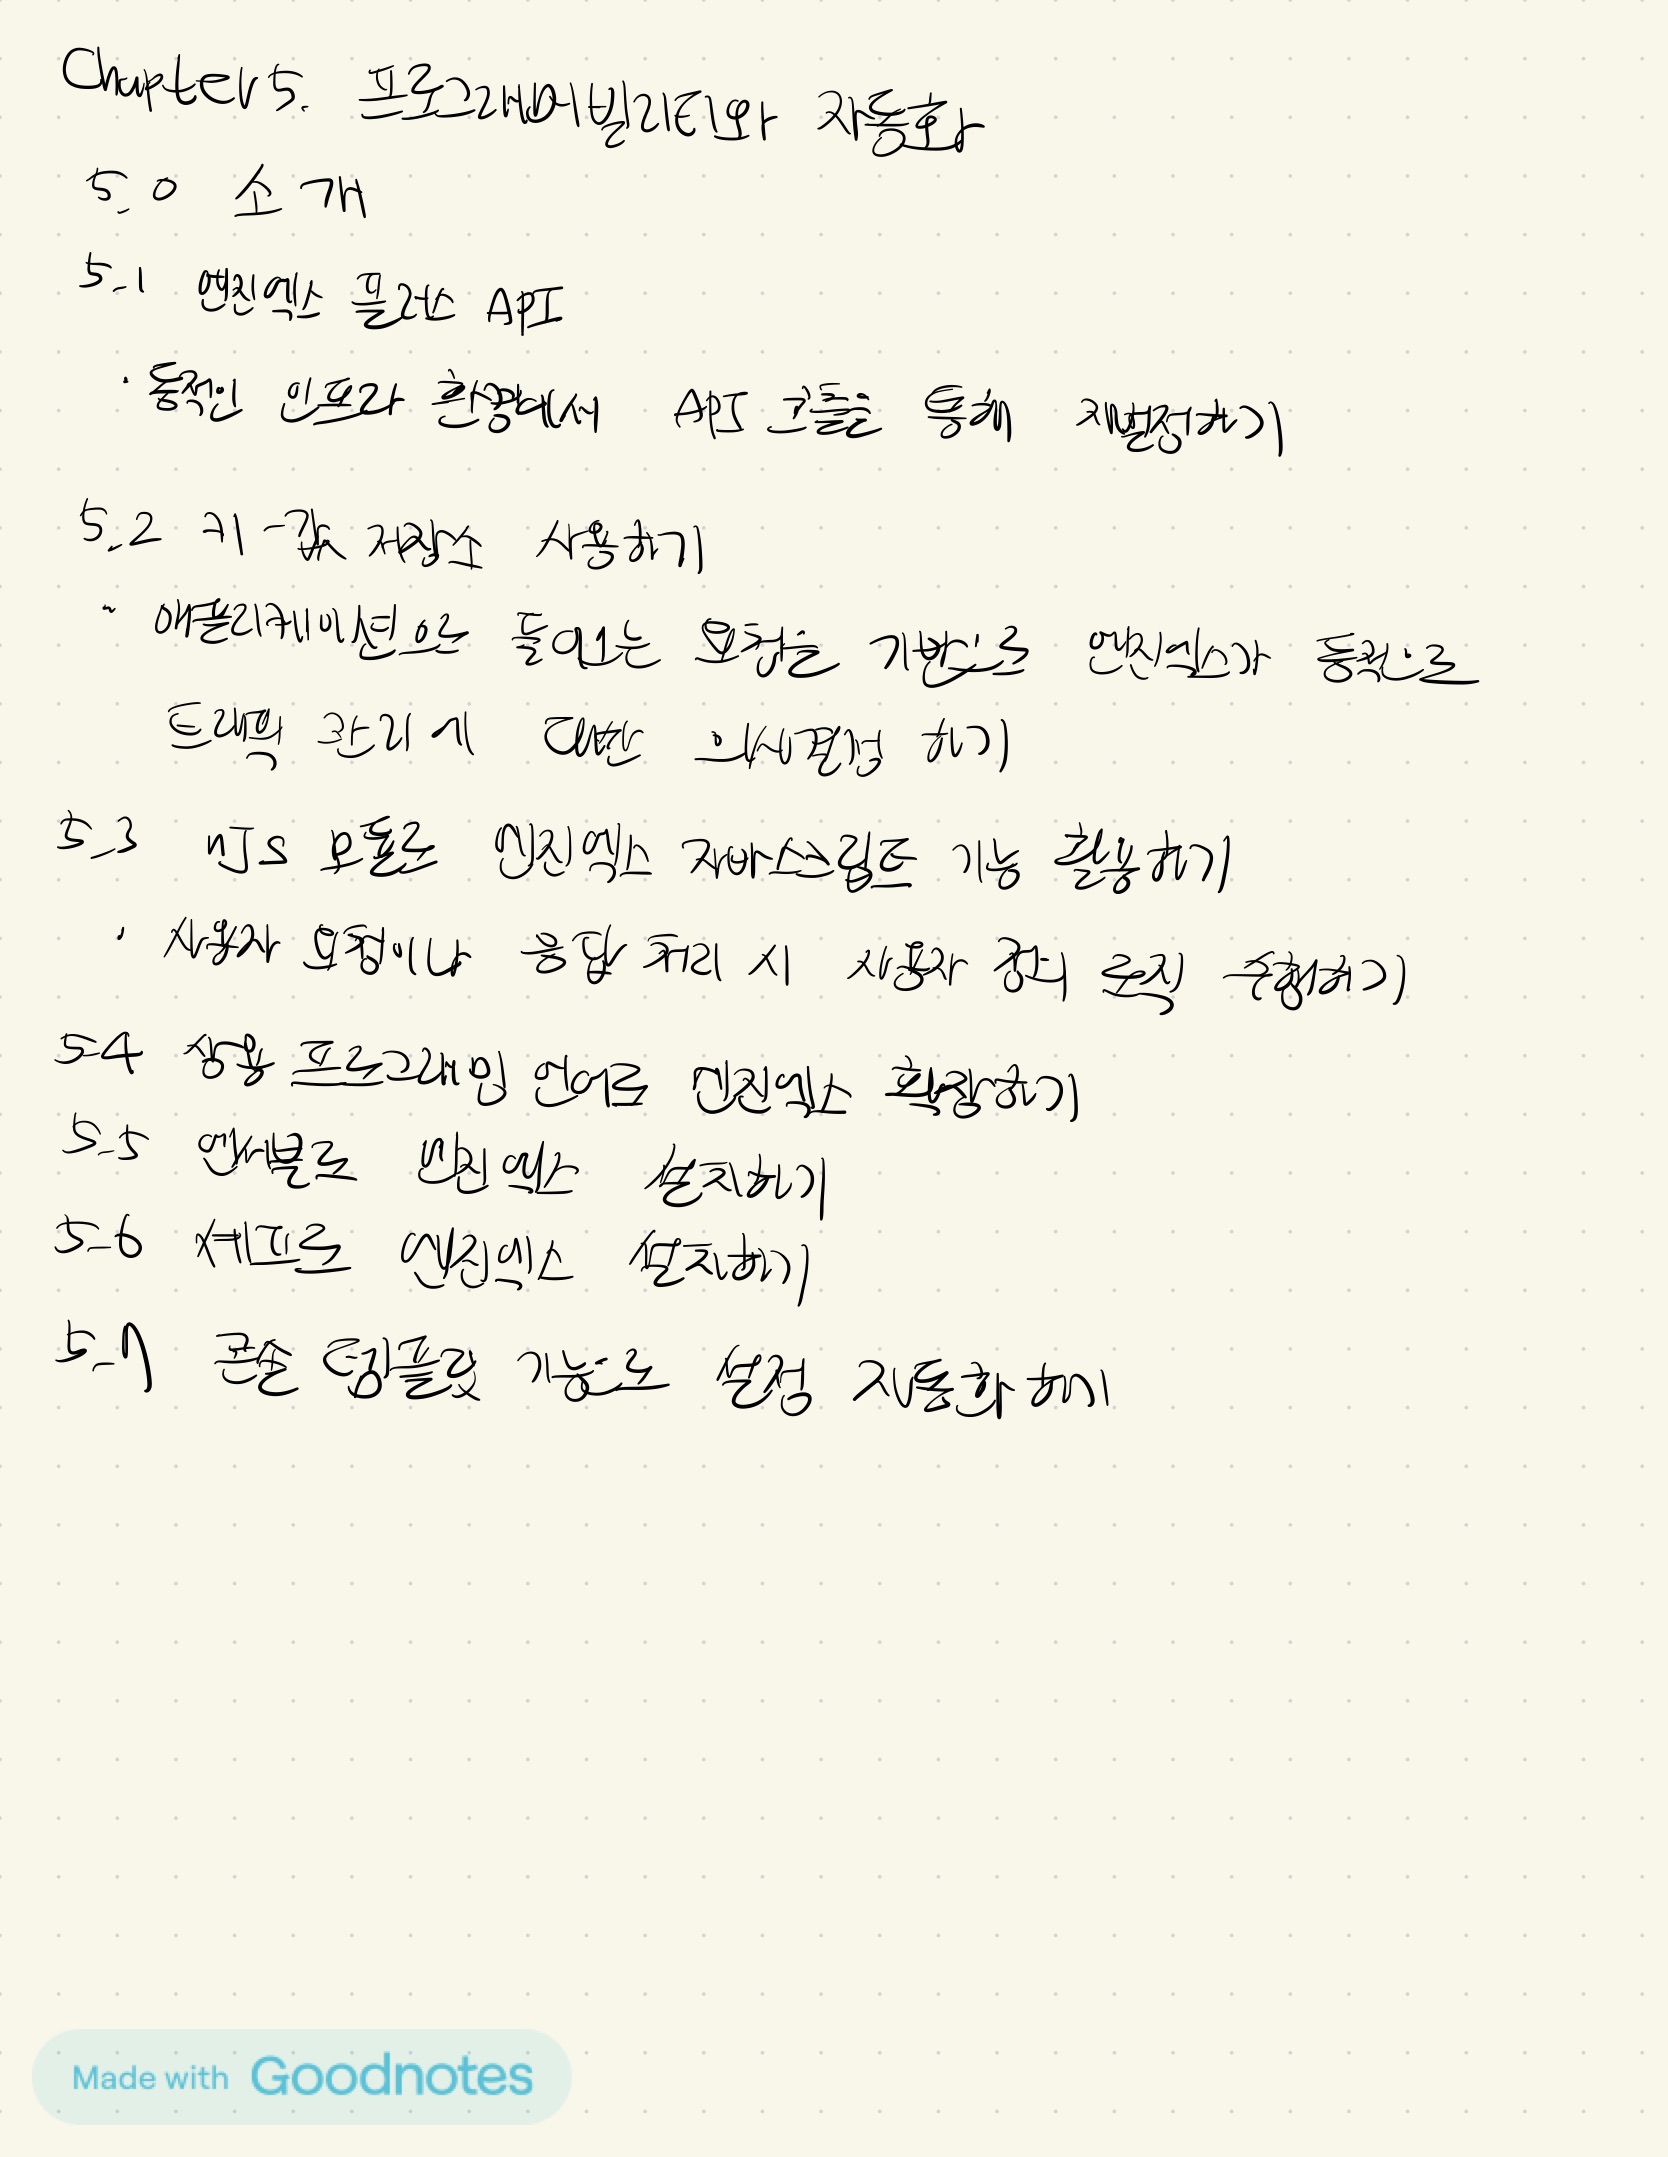 Chapter 5. 프로그래머빌리티와 자동화
5.0 소개
5.1 엔진엑스 플러스 API
· 동적인 인프라 환경에서 API 호출을 통해 재설정하기
5.2 키-값 저장소 사용하기
· 애플리케이션으로 들어오는 요청을 기반으로 엔진엑스가 동적으로
트래픽 관리에 대한 의사결정 하기
5.3 njs 모듈로 엔진엑스 자바스크립트 기능 활용하기
· 사용자 요청이나 응답 처리 시 사용자 정의 로직 수행하기
5.4 상용 프로그래밍 언어로 엔진엑스 확장하기
5.5 앤서블로 엔진엑스 설치하기
5.6 셰프로 엔진엑스 설치하기
5.7 콘솔 템플릿 기능으로 설정 자동화하기
Made with Goodnotes